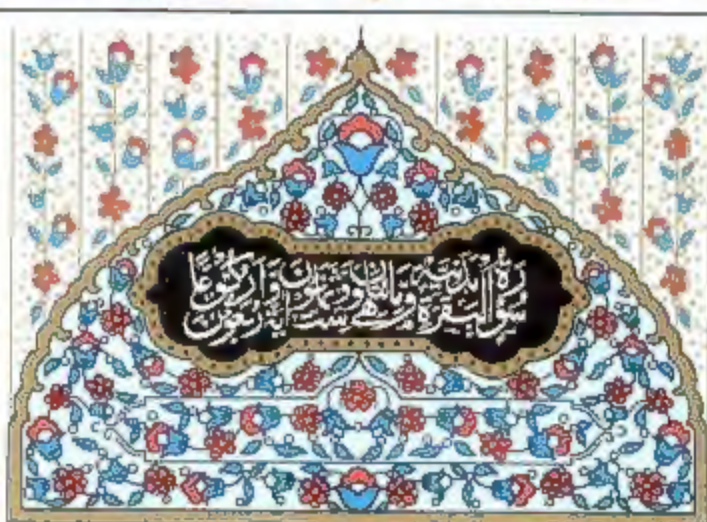 سورة البقرة مدنية وهي مائتان وست وثمانون آية واربعون ركوعا